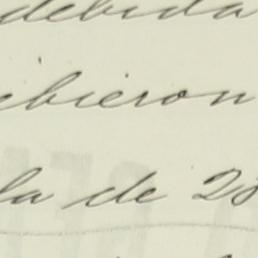 debida
ebieron
la de 28